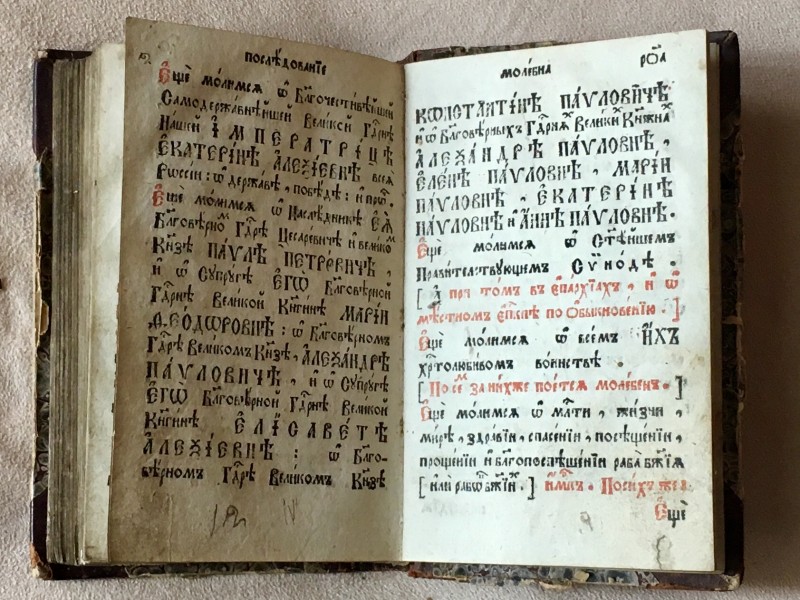 послѣдованїе
Є҆щѐ молимся ѡ҆ Бл҃гочестивѣйшей
Самодержавнѣйшей Великой Гдⷭ҇рнѣ
нашей І҆МПЕРАТРІЦѢ
Є҆КАТЕРІНѢ А҆ЛЕѮІЕВНѢ всеѧ̀
Рѡссїи: ѡ҆ державѣ, побѣдѣ: и҆ прѡⷱ҇.
Є҆щѐ молимся ѡ҆ Наслѣдникѣ Є҆Ѧ̀
Благовѣрноⷨ Гдⷭ҇рѣ Цесаревичѣ и҆ великоⷨ
Кн҃зѣ ПАѴЛѢ ПЕТРОВИЧѢ,
и҆ ѡ҆ Сꙋпрꙋгѣ Є҆ГѠ̀ Благовѣрной
Гдⷭ҇рнѣ Великой Кн҃гинѣ МАРІИ
Ѳ҆ЕѠДѠРОВНѢ: ѡ҆ Благовѣрномъ
Гдⷭ҇рѣ Великомъ Кн҃зѣ, А҆ЛЕѮАНДРѢ
ПАѴЛОВИЧѢ, и҆ ѡ҆ Сꙋпрꙋгѣ
Є҆ГѠ̀ Благовѣрной Гдⷭ҇рнѣ Великой
Кн҃гинѣ Є҆ЛІСАВЕТѢ
А҆ЛЕѮІЕВНѢ: ѡ҆ Благо-
вѣрномъ Гдⷭ҇рѣ Великомъ Кн҃зѣ
молебна
ро҃а
КѠНСТАНТІНѢ ПАѴЛОВИЧѢ
и҆ ѡ҆ Благовѣрныхъ Гдⷭ҇рнѧⷯ Великиⷯ Кн҃жнаⷯ
А҆ЛЕѮАНДРѢ ПАѴЛОВНѢ,
Є҆ЛЕНѢ ПАѴЛОВНѢ, МАРІИ
ПАѴЛОВНѢ, Є҆КАТЕРІНѢ
ПАѴЛОВНѢ и҆ А҆ННѢ ПАѴЛОВНѢ.
Є҆щѐ молимся ѡ҆ Ст҃ѣйшемъ
Правителствꙋющемъ СѴНОДѢ.
[ А҆ при томъ въ є҆пархїахъ, и҆ ѡ҆
мѣстномъ є҆пⷭ҇кпѣ по ѻ҆быкновенїю. ]
Є҆щѐ молимся ѡ҆ всемъ И҆́ХЪ
хрⷭ҇толюбивомъ воинствѣ.
[ По сеⷨ за нихже поется молебен. ]
Є҆щѐ молимся ѡ҆ млⷭ҇ти, жизни,
мирѣ, здравїи, спасенїи, посѣщенїи,
прощенїи и҆ благопоспѣшенїи раба̀ бж҃їѧ
[ и҆лѝ рабѡ́въ бж҃їиⷯ. ] и҆́мкъ. По сихъ же:
Є҆щѐ